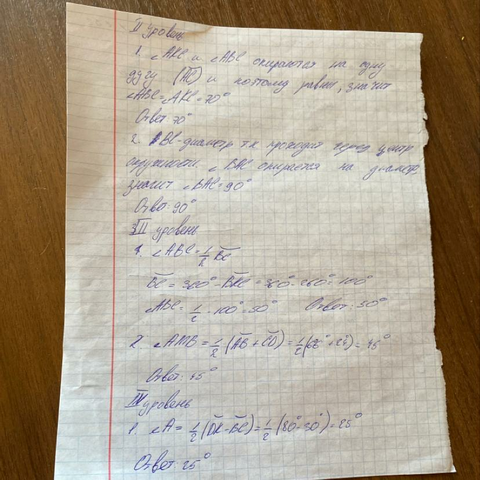 II уровень
1. ∠AKC и ∠ABC опираются на одну
дугу (AC) и поэтому равны, значит
∠ABC=∠AKC=70°
Ответ 70°
2. BC-диаметр т.к проходит через центр
окружности. ∠BAC опирается на диаметр,
значит ∠BAC=90°
Ответ 90°
III уровень
∠ABC=1/2 BC
= 360°-
∠ABC=1/2·100°=50° Ответ: 50°
2. ∠AMB=1/2(AB+CD)=
Ответ: 45°
уровень
1. ∠A=1/2(DK-BC)=1/2(80°-30°)=25°
Ответ: 25°